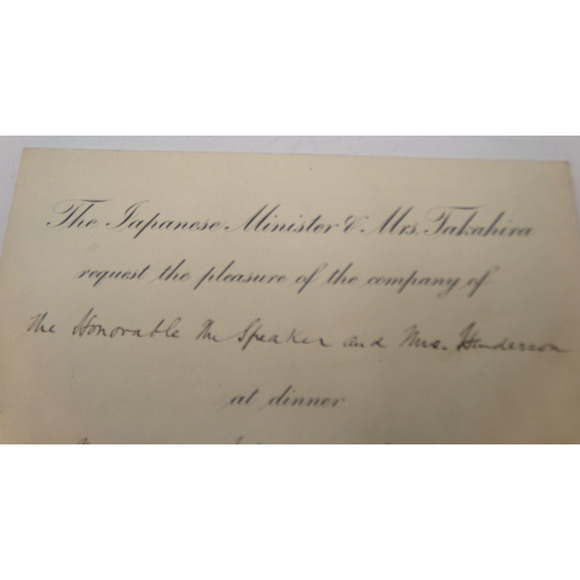 The Japanese Minister & Mrs. Takahira
request the pleasure of the company of
the Honorable The Speaker and Mrs. Henderson
at dinner